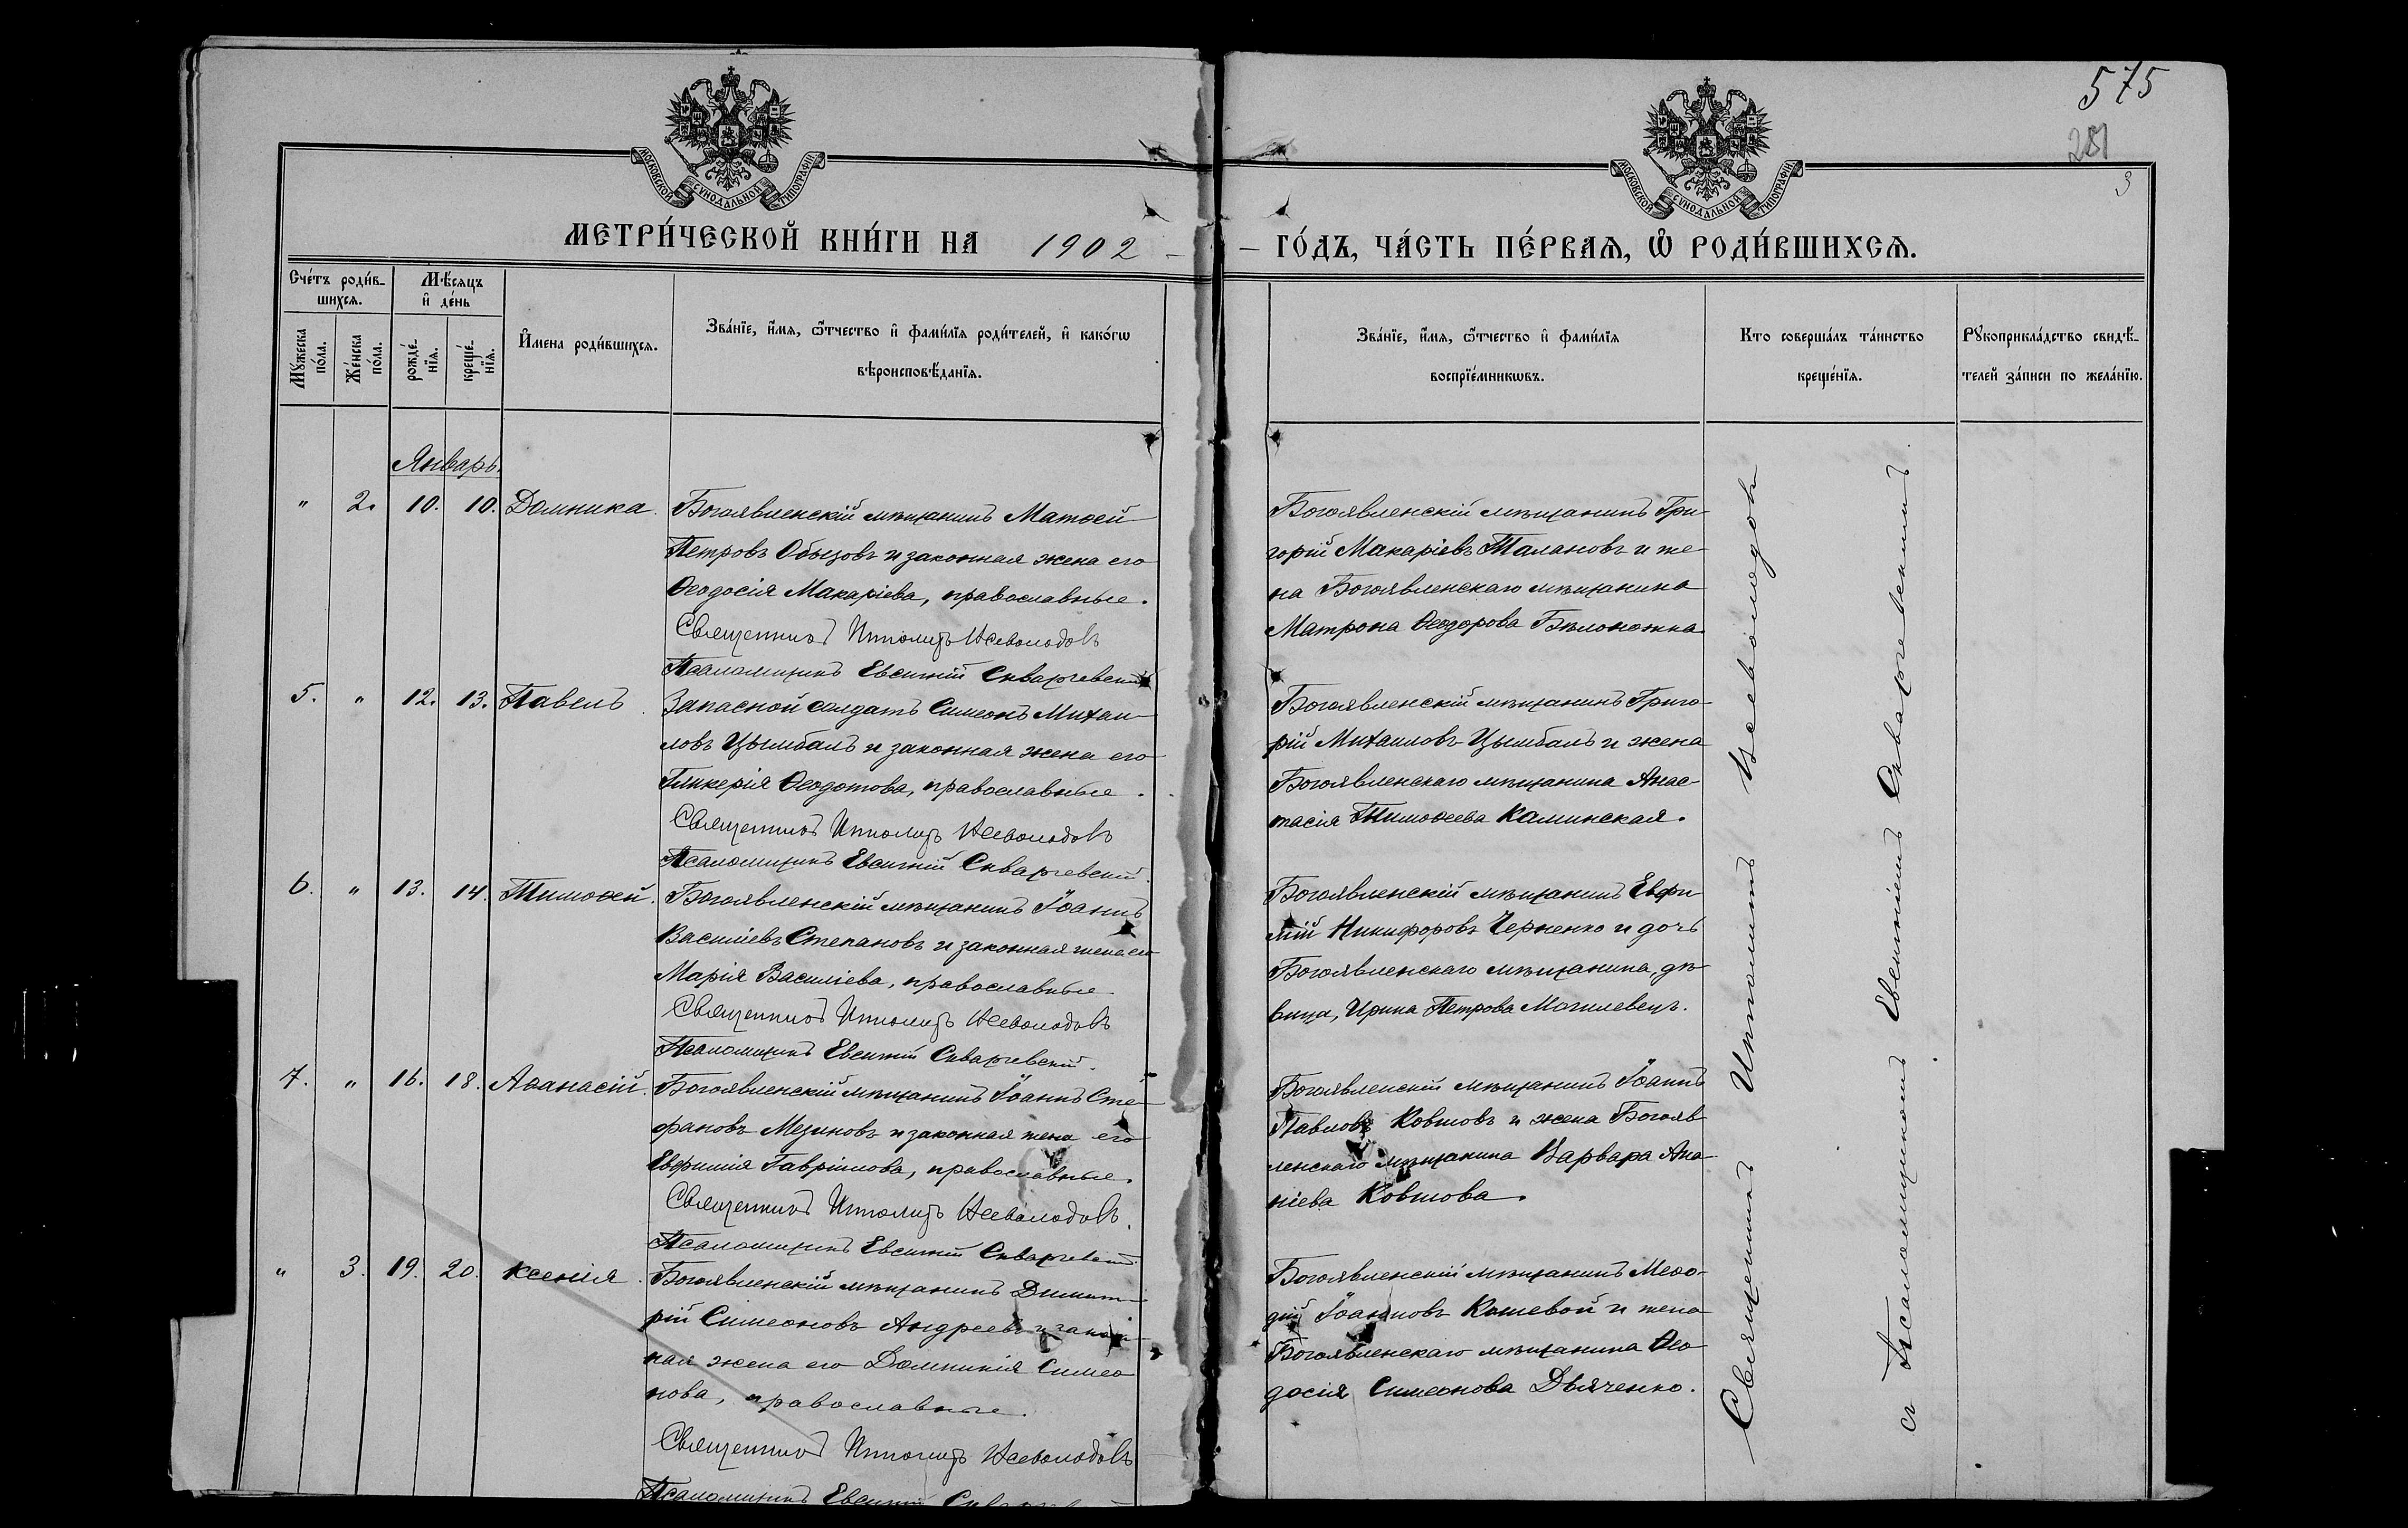 575
281
3
МОСКОВСКОЙ СѴНОДАЛЬНОЙ ТИПОГРАФІИ
МОСКОВСКОЙ СѴНОДАЛЬНОЙ ТИПОГРАФІИ
МЕТРИ́ЧЕСКОЙ КНИ́ГИ НА 1902 —
— ГО́ДЪ, ЧА́СТЬ ПЕ́РВАЯ, Ѿ РОДИ́ВШИХСЯ.
Сче́тъ роди́в-
шихся.
Мѣ́сяцъ
и де́нь
Му́жеска
по́ла.
Же́нска
по́ла.
рожде́-
нїя.
креще́-
нїя.
И҆мена роди́вшихся.
Зва́нїе, и҆́мя, ѻ҆́тчество и҆ фами́лїя роди́телей, и҆ како́гѡ
вѣроисповѣ́данїя.
Зва́нїе, и҆́мя, ѻ҆́тчество и҆ фами́лїя
воспрїе́мникѡвъ.
Кто соверша́лъ та́инство
креще́нїя.
Рукоприкла́дство свидѣ́-
телей за́писи по жела́нїю.
Январь.
" 2. 10. 10. Домника.
Богоявленскій мѣщанинъ Матѳей
Петровъ Обызовъ и законная жена его
Ѳеодосія Макаріева, православные.
Священникъ Ипполитъ Всеволодовъ
Псаломщикъ Евсигній Скваржевскій
Богоявленскій мѣщанинъ Гри-
горій Макаріевъ Талановъ и же-
на Богоявленскаго мѣщанина
Матрона Ѳеодорова Бѣлоножка.
5. " 12. 13. Павелъ.
Запасной солдатъ Симеонъ Михаи-
ловъ Цымбалъ и законная жена его
Гликерія Ѳеодотова, православные.
Священникъ Ипполитъ Всеволодовъ
Псаломщикъ Евсигній Скваржевскій.
Богоявленскій мѣщанинъ Григо-
рій Михаиловъ Цымбалъ и жена
Богоявленскаго мѣщанина Анас-
тасія Тимоѳеева Каминская.
6. " 13. 14. Тимоѳей.
Богоявленскій мѣщанинъ Іоаннъ
Василіевъ Степановъ и законная жена его
Марія Василіева, православные
Священникъ Ипполитъ Всеволодовъ
Псаломщикъ Евсигній Скваржевскій.
Богоявленскій мѣщанинъ Евфи-
мій Никифоровъ Черненко и дочь
Богоявленскаго мѣщанина, дѣ-
вица, Ирина Петрова Могилевецъ.
7. " 16. 18. Аѳанасій.
Богоявленскій мѣщанинъ Іоаннъ Сте-
фановъ Мезиновъ и законная жена его
Евфимія Гавріилова, православные.
Священникъ Ипполитъ Всеволодовъ.
Псаломщикъ Евсигній Скваржевскій.
Богоявленскій мѣщанинъ Іоаннъ
Павловъ Ковшовъ и жена Богояв-
ленскаго мѣщанина Варвара Ана-
ніева Ковшова.
" 3. 19. 20. Ксенія.
Богоявленскій мѣщанинъ Димит-
рій Симеоновъ Андреевъ и закон-
ная жена его Домникія Симео-
нова, православные.
Священникъ Ипполитъ Всеволодовъ
Псаломщикъ Евсигній
Богоявленскій мѣщанинъ Меѳо-
дій Іоанновъ Кошевой и жена
Богоявленскаго мѣщанина Ѳео-
досія Симеонова Дьяченко.
Священникъ Ипполитъ Всеволодовъ
съ Псаломщикомъ Евсигніемъ Скваржевскимъ.